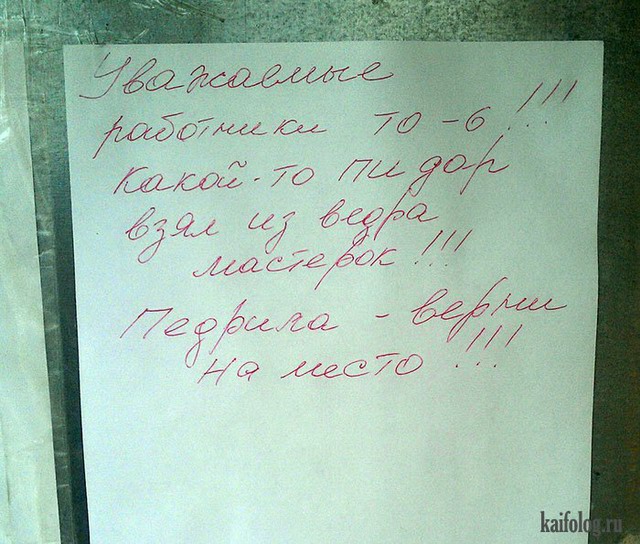 Уважаемые
работники ТО-6!!!
Какой-то пидор
взял из ведра
мастерок!!!
Педрила - верни
на место!!!
kaifolog.ru